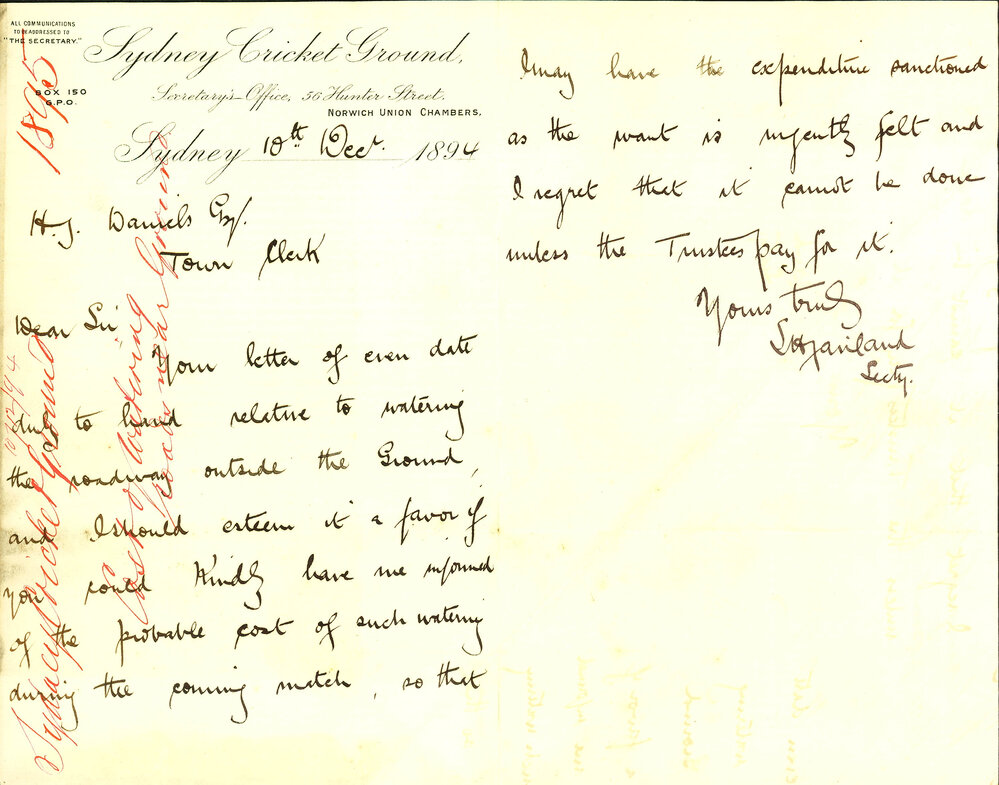 ALL COMMUNICATIONS
TO BE ADDRESSED TO
"THE SECRETARY."
BOX 150
G.P.O.
Sydney Cricket Ground,
Secretary's Office, 56 Hunter Street,
NORWICH UNION CHAMBERS,
Sydney 10th Decr. 1894
H. J. Daniels Esq.
Town Clerk
Dear Sir
Your letter of even date
duly to hand relative to watering
the roadway outside the Ground,
and I should esteem it a favor if
you could Kindly have me informed
of the probable cost of such watering
during the coming match, so that
I may have the expenditure sanctioned
as the want is urgently felt and
I regret that it cannot be done
unless the Trustees pay for it.
Yours truly
Secty.
1895
10/12/94
Sydney Cricket Ground
Cost of Watering
road near Ground